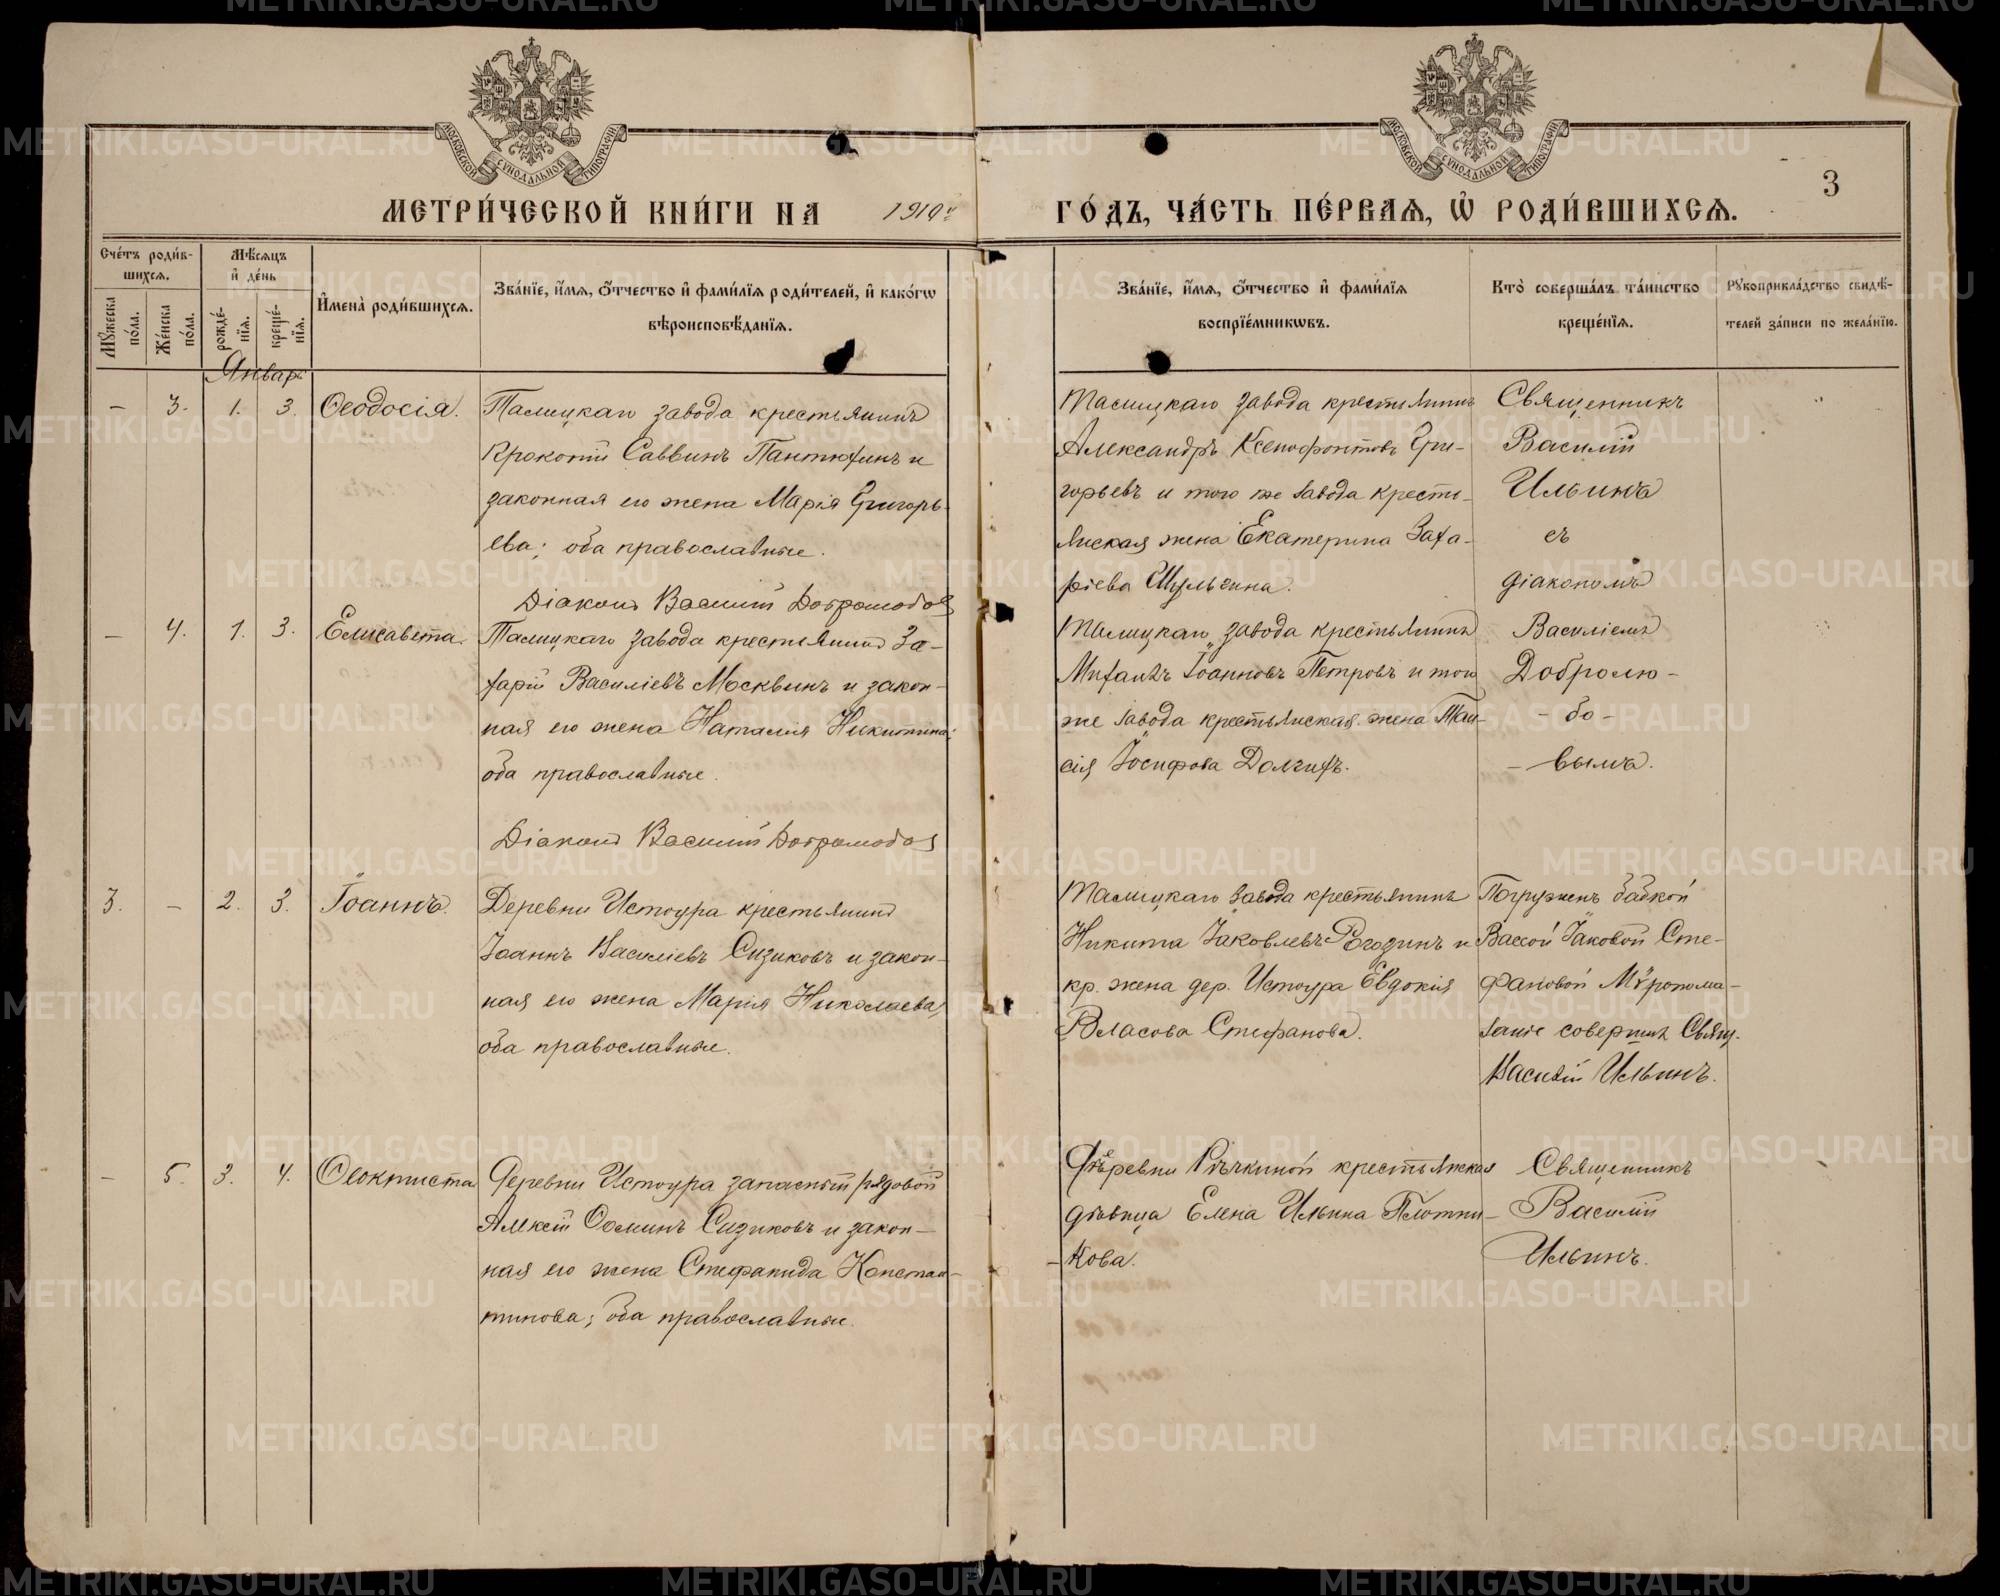 МОСКОВСКОЙ СѴНОДАЛЬНОЙ ТИПОГРАФІИ
МОСКОВСКОЙ СѴНОДАЛЬНОЙ ТИПОГРАФІИ
3
МЕТРИ́ЧЕСКОЙ КНИ́ГИ НА 1910й ГО́ДЪ, ЧА́СТЬ ПЕ́РВАѦ, Ѡ҆ РОДИ́ВШИХСѦ.
Сче́тъ роди́в-
шихсѧ.
Мѣ́сѧцъ
и҆ де́нь
Мꙋ́жеска
по́ла.
Же́нска
по́ла.
рожде́-
нїѧ.
креще́-
нїѧ.
И҆мена̀ роди́вшихсѧ.
Зва́нїе, и҆́мѧ, ѻ҆́тчество и҆ фами́лїѧ роди́телей, и҆ како́гѡ
вѣроисповѣ́данїѧ.
Зва́нїе, и҆́мѧ, ѻ҆́тчество и҆ фами́лїѧ
воспрїе́мникѡвъ.
Кто̀ соверша́лъ та́инство
креще́нїѧ.
Рꙋкоприкла́дство свидѣ́-
телей за́писи по жела́нїю.
Январь
– 3. 1. 3. Ѳеодосія.
Талицкаго завода крестьянинъ
Прокопій Саввинъ Пантюхинъ и
законная его жена Марія Григорь-
ева; оба православные.
Діаконъ Василій Добролюбов
Талицкаго завода крестьянинъ
Александръ Ксенофонтовъ Гри-
горьевъ и того же завода кресть-
янская жена Екатерина Заха-
ріева Шульгина.
Священникъ
Василій
Ильинъ
съ
діакономъ
– 4. 1. 3. Елисавета.
Талицкаго завода крестьянинъ За-
харій Василіевъ Москвинъ и закон-
ная его жена Наталія Никитина;
оба православные.
Діаконъ Василій Добролюбов
Талицкаго завода крестьянинъ
Михаилъ Іоанновъ Петровъ и того
же завода крестьянская жена Таи-
сія Іосифова Долгихъ.
Василіемъ
Добролю-
- бо -
- вымъ.
3. – 2. 3. Іоаннъ.
Деревни Истоура крестьянинъ
Іоаннъ Василіевъ Сизиковъ и закон-
ная его жена Марія Николаева,
оба православные.
Талицкаго завода крестьянинъ
Никита Іаковлевъ Рогозинъ и
кр. жена дер. Истоура Евдокія
Власова Стефанова.
Погруженъ бабкой
Вассой Іаковой Сте-
фановой Мѵропома-
заніе совершилъ Свящ.
Василій Ильинъ.
– 5. 3. 4. Ѳеоктиста
Деревни Истоура запасный рядовой
Алексій Ѳоминъ Сизиковъ и закон-
ная его жена Стефанида Констан-
тинова; оба православные.
Деревни Рѣчкиной крестьянская
дѣвица Елена Ильина Плотни-
-кова.
Священникъ
Василій
Ильинъ.
METRIKI.GASO-URAL.RU